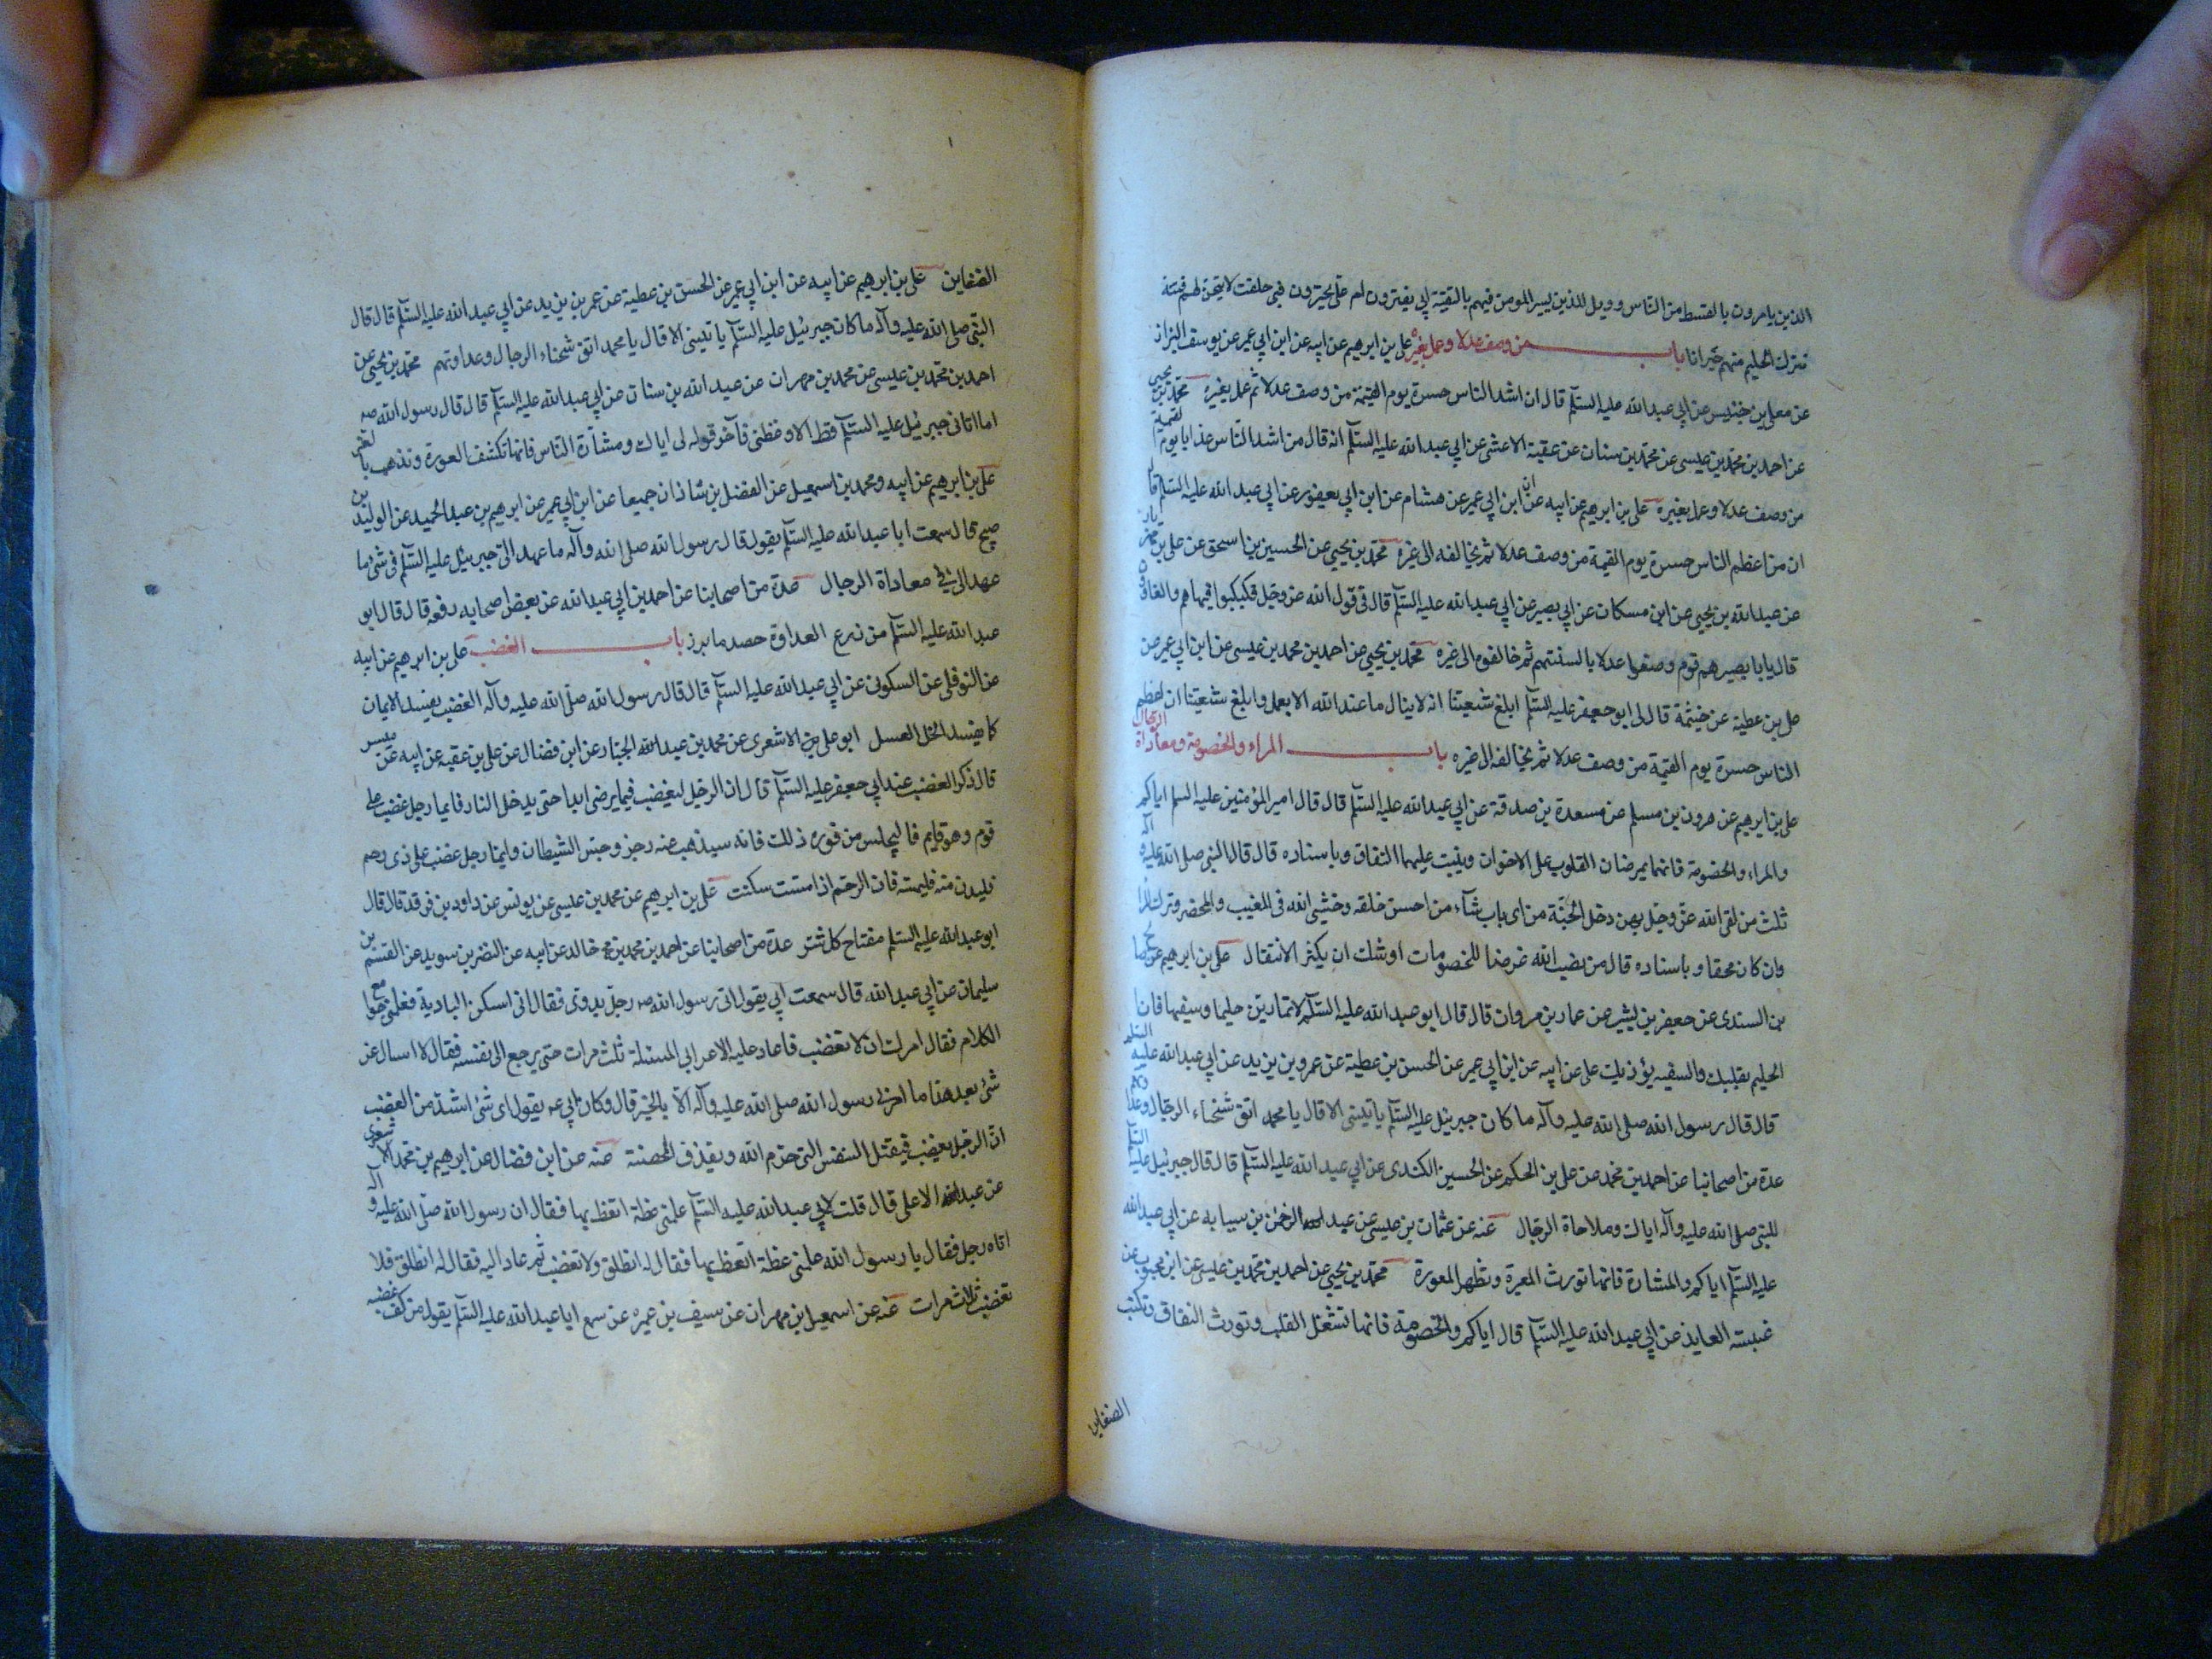 الذين يامرون بالقسط من الناس وويل للذين يسير المومن فيهم بالتقية ابي يغترون ام على يجترون فبي حلفت لاتيحن لهم فتنة
تترك الحليم منهم حيرانا باب من وصف عدلا وعمل بغيره على بن ابرهيم عن ابيه عن ابن ابي عمير عن يوسف البزاز
عن معلى بن خنيس عن ابي عبد الله عليه السلم قال ان اشد الناس حسرة يوم القيمة من وصف عدلا ثم عمل بغيره محمد بن يحيى
عن احمد بن محمد بن عيسى عن محمد بن سنان عن عقيبة الاعشى عن ابي عبد الله عليه السلم انه قال من اشد الناس عذابا يوم القيمة
من وصف عدلا وعمل بغيره على بن ابرهيم عن ابيه عن ابن ابي عمير عن هشام عن ابن ابي يعفور عن ابي عبد الله عليه السلم قال
ان من اعظم الناس حسرة يوم القيمة من وصف عدلا ثم يخالفه الى غيره محمد بن يحيى عن الحسين بن اسحق عن على بن مهزيار
عن عبد الله بن يحيى عن ابن مسكان عن ابي بصير عن ابي عبد الله عليه السلم قال في قول الله عز وجل فكبكبوا فيها هم والغاوون
قال يابا بصير هم قوم وصفوا عدلا بالسنتهم ثم خالفوه الى غيره محمد بن يحيى عن احمد بن محمد بن عيسى عن ابن ابي عمير عن
على بن عطية عن خيثمة قال لي ابو جعفر عليه السلم ابلغ شيعتنا انه لا ينال ما عند الله الا بعمل وابلغ شيعتنا ان اعظم
الناس حسرة يوم القيمة من وصف عدلا ثم يخالفه الى غيره باب المراء والخصومة ومعاداة الرجال
على بن ابرهيم عن هرون بن مسلم عن مسعدة بن صدقة عن ابي عبد الله عليه السلم قال قال امير المؤمنين عليه السلم اياكم
والمراء والخصومة فانهما يمرضان القلوب على الاخوان وينبت عليهما النفاق وباسناده قال قال النبي صلى الله عليه وآله
ثلث من لقى الله عز وجل بهن دخل الجنة من اى باب شآء من احسن خلقه وخشي الله في المغيب والمحضر وترك المرا
وان كان محقا وباسناده قال من نصب الله غرضا للخصومات اوشك ان يكثر الانتقال على بن ابرهيم عن صالح
بن السندى عن جعفر بن بشير عن عمار بن مروان قال قال ابو عبد الله عليه السلم لا تمارين حليما وسفيها فان
الحليم يقليك والسفيه يؤذيك على عن ابيه عن ابن ابي عمير عن الحسن بن عطية عن عمرو بن يزيد عن ابي عبد الله عليه السلم
قال قال رسول الله صلى الله عليه وآله ما كان جبرئيل عليه السلم ياتيني الا قال يا محمد اتق شحناء الرجال وعداوتهم
عدة من اصحابنا عن احمد بن محمد عن على بن الحكم عن الحسين الكندى عن ابي عبد الله عليه السلم قال قال جبرئيل عليه السلم
للنبي صلى الله عليه وآله اياك وملاحاة الرجال عنه عن عثمان بن عيسى عن عبد الرحمن بن سيابه عن ابي عبد الله
عليه السلم اياكم والمشارة فانها تورث المعرة وتظهر المعورة محمد بن يحيى عن احمد بن محمد بن عيسى عن ابن محبوب عن
عنبسة العابد عن ابي عبد الله عليه السلم قال اياكم والخصومة فانها تشغل القلب وتورث النفاق وتكسب
الضغاين
الضغاين على بن ابرهيم عن ابيه عن ابن ابي عمير عن الحسن بن عطية عن عمر بن يزيد عن ابي عبد الله عليه السلم قال قال
النبي صلى الله عليه وآله ما كان جبرئيل عليه السلم ياتيني الا قال يا محمد اتق شحناء الرجال وعداوتهم محمد بن يحيى عن
احمد بن محمد بن عيسى عن محمد بن مهران عن عبد الله بن سنان عن ابي عبد الله عليه السلم قال قال رسول الله صه
اما اتانى جبرئيل عليه السلم قط الا وعظنى فآخر قوله لى اياك ومشارة الناس فانها تكشف العورة وتذهب بالعز
على بن ابرهيم عن ابيه ومحمد بن اسمعيل عن الفضل بن شاذان جميعا عن ابن ابي عمير عن ابرهيم بن عبد الحميد عن الوليد بن
صبيح قال سمعت ابا عبد الله عليه السلم يقول قال رسول الله صلى الله وآله ما عهد الى جبرئيل عليه السلم في شئ ما
عهد الى في معاداة الرجال عدة من اصحابنا عن احمد بن ابي عبد الله عن بعض اصحابه رفعه قال قال ابو
عبد الله عليه السلم من زرع العداوة حصد ما بذر باب الغضب على بن ابرهيم عن ابيه
عن النوفلى عن السكونى عن ابي عبد الله عليه السلم قال قال رسول الله صلى الله عليه وآله الغضب يفسد الايمان
كما يفسد الخل العسل ابو على الاشعرى عن محمد بن عبد الجبار عن ابن فضال عن على بن عقبه عن ابيه عن ميسر
قال ذكر الغضب عند ابي جعفر عليه السلم قال ان الرجل ليغضب فيما يرضى ابدا حتى يدخل النار فايما رجل غضب على
قوم وهو قايم فاليجلس من فوره ذلك فانه سيذهب عنه رجز وجس الشيطان وايما رجل غضب على ذى رحم
فليدن منه فليمسه فان الرحم اذا مست سكنت على بن ابرهيم عن محمد بن عيسى عن يونس عن داود بن فرقد قال قال
ابو عبد الله عليه السلم مفتاح كل شر عدة من اصحابنا عن احمد بن محمد بن خالد عن ابيه عن النضر بن سويد عن القسم بن
سليمان عن ابي عبد الله قال سمعت ابي يقول اتى رسول الله صه رجل بدوى فقال انى اسكن البادية فعلمنى جوامع
الكلام فقال امرك ان لا تغضب فاعاد عليه الاعرابى المسئلة ثلث مرات حتى يرجع الى نفسه فقال لا اسال عن
شئ بعد هذا ما امرنى رسول الله صلى الله عليه وآله الا بالخير قال وكان ابي عه يقول اى شئ اشد من الغضب
ان الرجل يغضب فيقتل النفس التى حرم الله ويقذف المحصنة عنه عن ابن فضال عن ابرهيم بن محمد الاشعرى
عن عبد الاعلى قال قلت لابي عبد الله عليه السلم علمنى عظة اتعظ بها فقال ان رسول الله صلى الله عليه وآله
اتاه رجل فقال يا رسول الله علمنى عظة اتعظ بها فقال له انطلق ولا تغضب ثم عاد اليه فقال له انطلق فلا
تغضب ثلاث مرات عنه عن اسمعيل ابن مهران عن سيف بن عميره عن سمع ابا عبد الله عليه السلم يقول من كف غضبه